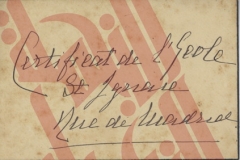 Certificat de l'Ecole
St Ignace
Rue de Madrid